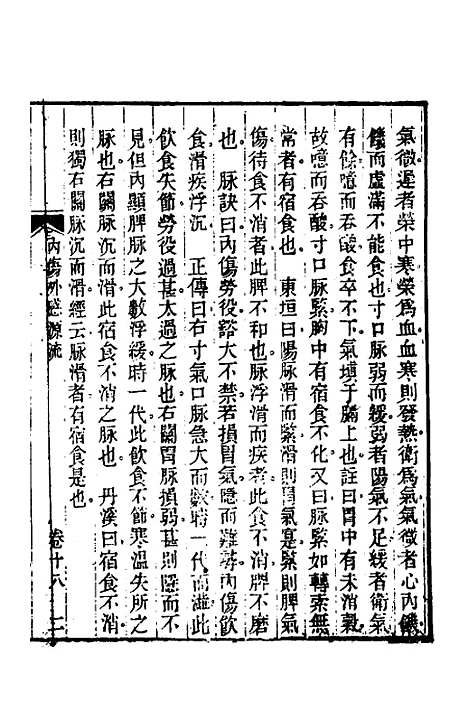 氣微遲者榮中寒榮爲血血寒則發熱衛爲氣氣微者心內饑
饑而虛滿不能食也寸口脉弱而緩弱者陽氣不足緩者衛氣
有餘噫而吞酸食卒不下氣塡于膈上也註曰胃中有未消穀
故噫而吞酸寸口脉緊胸中有宿食不化又曰脉緊如轉索無
常者有宿食也　東垣曰陽脉滑而緊滑則胃氣寔緊則脾氣
傷待食不消者此脾不和也脉浮滑而疾者此食不消脾不磨
也　脉訣曰內傷勞役豁大不禁若損胃氣隱而難尋內傷飲
食滑疾浮沉　正傳曰右寸氣口脉急大而數時一代而澁此
飲食失節勞役過甚太過之脉也右關胃脉損弱甚則隱而不
見但內顯脾脉之大數浮緩時一代此飲食不節寒溫失所之
脉也右關脉沉而滑此宿食不消之脉也　丹溪曰宿食不消
則獨右關脉沉而滑經云脉滑者有宿食是也
內傷外感源流
卷十八
二